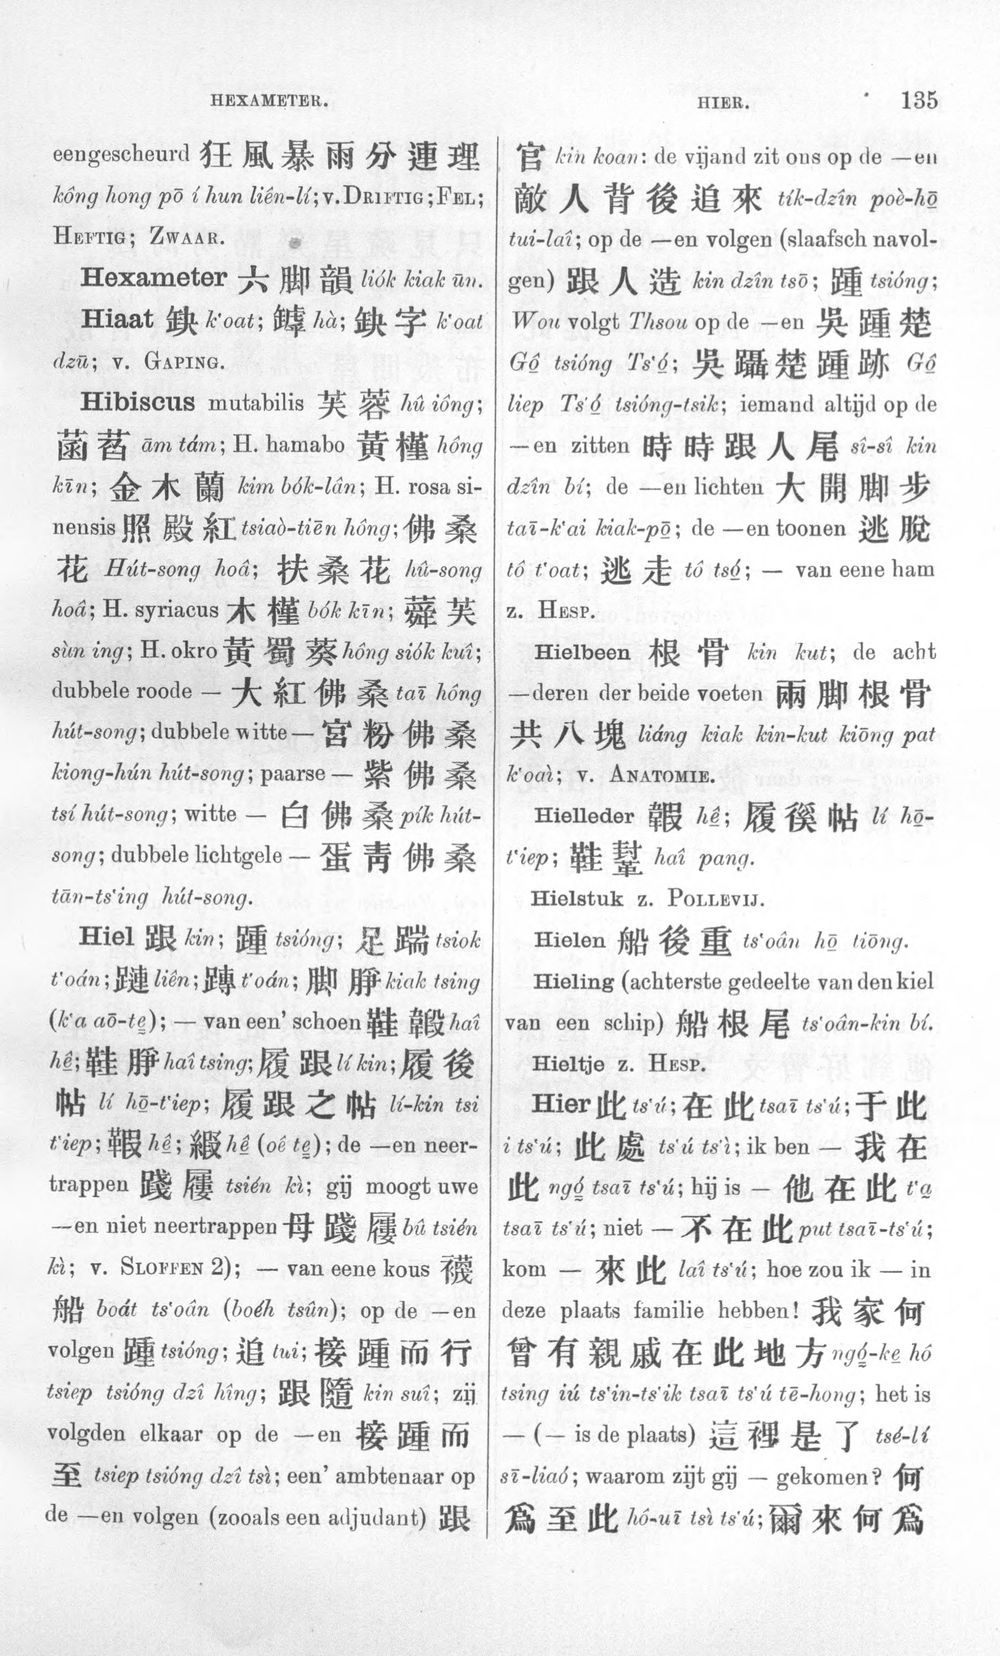 HEXAMETER.
HIER.
135
eengescheurd 狂風暴雨分連理
kông hong pō í hun liên-lí; v. DRIFTIG; FEL;
HEFTIG; ZWAAR.
Hexameter 六脚韻 liók kiak ūn.
Hiaat 鈌 k'oat; 罅 hà; 鈌字 k'oat
dzū; v. GAPING.
Hibiscus mutabilis 芙蓉 hû iông;
菡萏 ām tám; H. hamabo 黃槿 hông
kīn; 金木蘭 kim bók-lân; H. rosa si-
nensis 照殿紅 tsiaò-tiēn hông; 佛桑
花 Hút-song hoâ; 扶桑花 hû-song
hoâ; H. syriacus 木槿 bók kīn; 蕣芙
sùn ing; H. okro 黃蜀葵 hông siók kuî;
dubbele roode — 大紅佛桑 taī hông
hút-song; dubbele witte — 宮粉佛桑
kiong-hún hút-song; paarse — 紫佛桑
tsí hút-song; witte — 白佛桑 pík hút-
song; dubbele lichtgele — 蛋靑佛桑
tān-ts'ing hút-song.
Hiel 跟 kin; 踵 tsióng; 足踹 tsiok
t'oán; 蹥 liên; 䠪 t'oán; 脚脝 kiak tsing
(k'a aō-te̱); — van een' schoen 鞋鞎 haî
hê; 鞋脝 haî tsing; 履跟 lí kin; 履後
帖 lí hō̱-t'iep; 履跟之帖 lí-kin tsi
t'iep; 鞎 hê; 緞 hê (oê te̱); de —en neer-
trappen 踐屨 tsién kì; gij moogt uwe
—en niet neertrappen 毋踐屨 bû tsién
kì; v. SLOFFEN 2); — van eene kous 襪
船 boát ts'oân (boéh tsûn); op de —en
volgen 踵 tsióng; 追 tui; 接踵而行
tsiep tsióng dzî hîng; 跟隨 kin suî; zij
volgden elkaar op de —en 接踵而
至 tsiep tsióng dzî tsì; een' ambtenaar op
de —en volgen (zooals een adjudant) 跟
官 kin koan: de vijand zit ons op de —en
敵人背後追來 tík-dzîn poè-hō̱
tui-laî; op de —en volgen (slaafsch navol-
gen) 跟人造 kin dzîn tsō; 踵 tsióng;
Wou volgt Thsou op de —en 吳踵楚
Gô̱ tsióng Ts'ó̱; 吳躡楚踵跡 Gô̱
liep Ts'ó̱ tsióng-tsik; iemand altijd op de
—en zitten 時時跟人尾 sî-sî kin
dzîn bí; de —en lichten 大開脚步
taī-k'ai kiak-pō̱; de —en toonen 逃脫
tô t'oat; 逃走 tô tsó̱; — van eene ham
z. HESP.
Hielbeen 根骨 kin kut; de acht
—deren der beide voeten 兩脚根骨
共八塊 liáng kiak kin-kut kiōng pat
k'oaì; v. ANATOMIE.
Hielleder 鞎 hê̱; 履後帖 lí hō̱-
t'iep; 鞋幫 haî pang.
Hielstuk z. POLLEVIJ.
Hielen 船後重 ts'oân hō̱ tiōng.
Hieling (achterste gedeelte van den kiel
van een schip) 船根尾 ts'oân-kin bí.
Hieltje z. HESP.
Hier 此 ts'ú; 在此 tsaī ts'ú; 于此
i ts'ú; 此處 ts'ú ts'ì; ik ben — 我在
此 ngó̱ tsaī ts'ú; hij is — 他在此 t'a̱
tsaī ts'ú; niet — 不在此 put tsaī-ts'ú;
kom — 來此 laî ts'ú; hoe zou ik — in
deze plaats familie hebben! 我家何
曾有親戚在此地方 ngó̱-ke̱ hó
tsing iú ts'in-ts'ik tsaī ts'ú tē-hong; het is
— (— is de plaats) 這裡是了 tsé-lí
sī-liaó; waarom zijt gij — gekomen? 何
爲至此 hô-uī tsì ts'ú; 爾來何爲